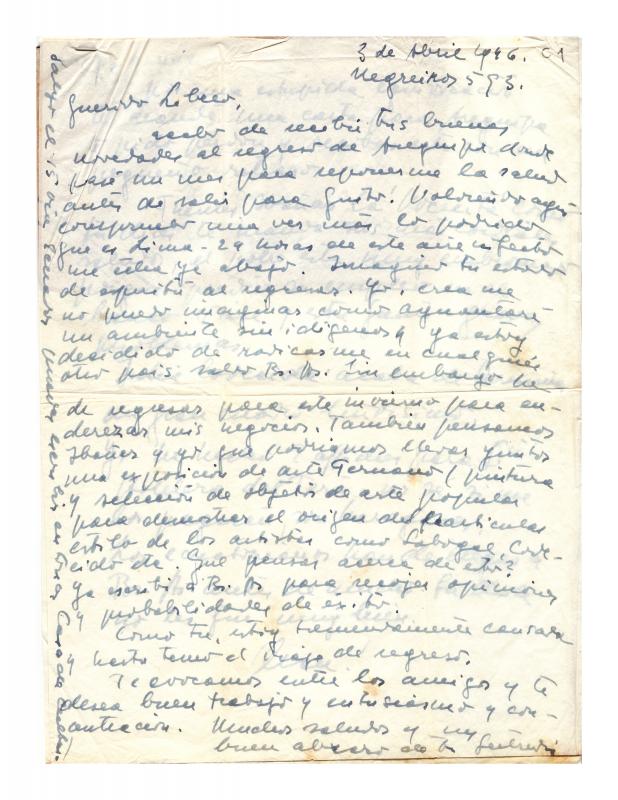 3 de Abril 1946.
Negreiros 593.
Querido
acabo de recibir tus buenas
novedades al regreso de Arequipa donde
pasé un mes para reponerme la salud
antes de salir para Quito! Volviendo aquí
compruebo una vez más, lo podrido
que es Lima - 24 horas de este aire infecto
me echa ya abajo. Imagino tu estado
de espíritu al regresar. Yo, crea me
no puedo imaginar como aguantaré
un ambiente sin y ya estoy
decidido de radicarme en cualquier
otro país salvo Bs. As. Sin embargo he
de regresar para este invierno para en-
derezar mis negocios. También pensamos
Ibañez y yo que podríamos llevar juntos
una exposición de arte Peruano (pintura
y selección de objetos de arte popular
para demostrar el origen del particular
estilo de los artistas como Sabogal, Code-
cido etc. Que pensas acerca de esto?
Ya escribí a Bs. As para recojer opiniones
y probabilidades de exito.
Como tu, estoy tremendamente cansada
y hasta temo el viaje de regreso.
Te evocamos entre los amigos y te
desea buen trabajo y entusiasmo y con-
. Muchos saludos y un
buen abrazo de tu
Salgo el 15 puedes escribir Casa de